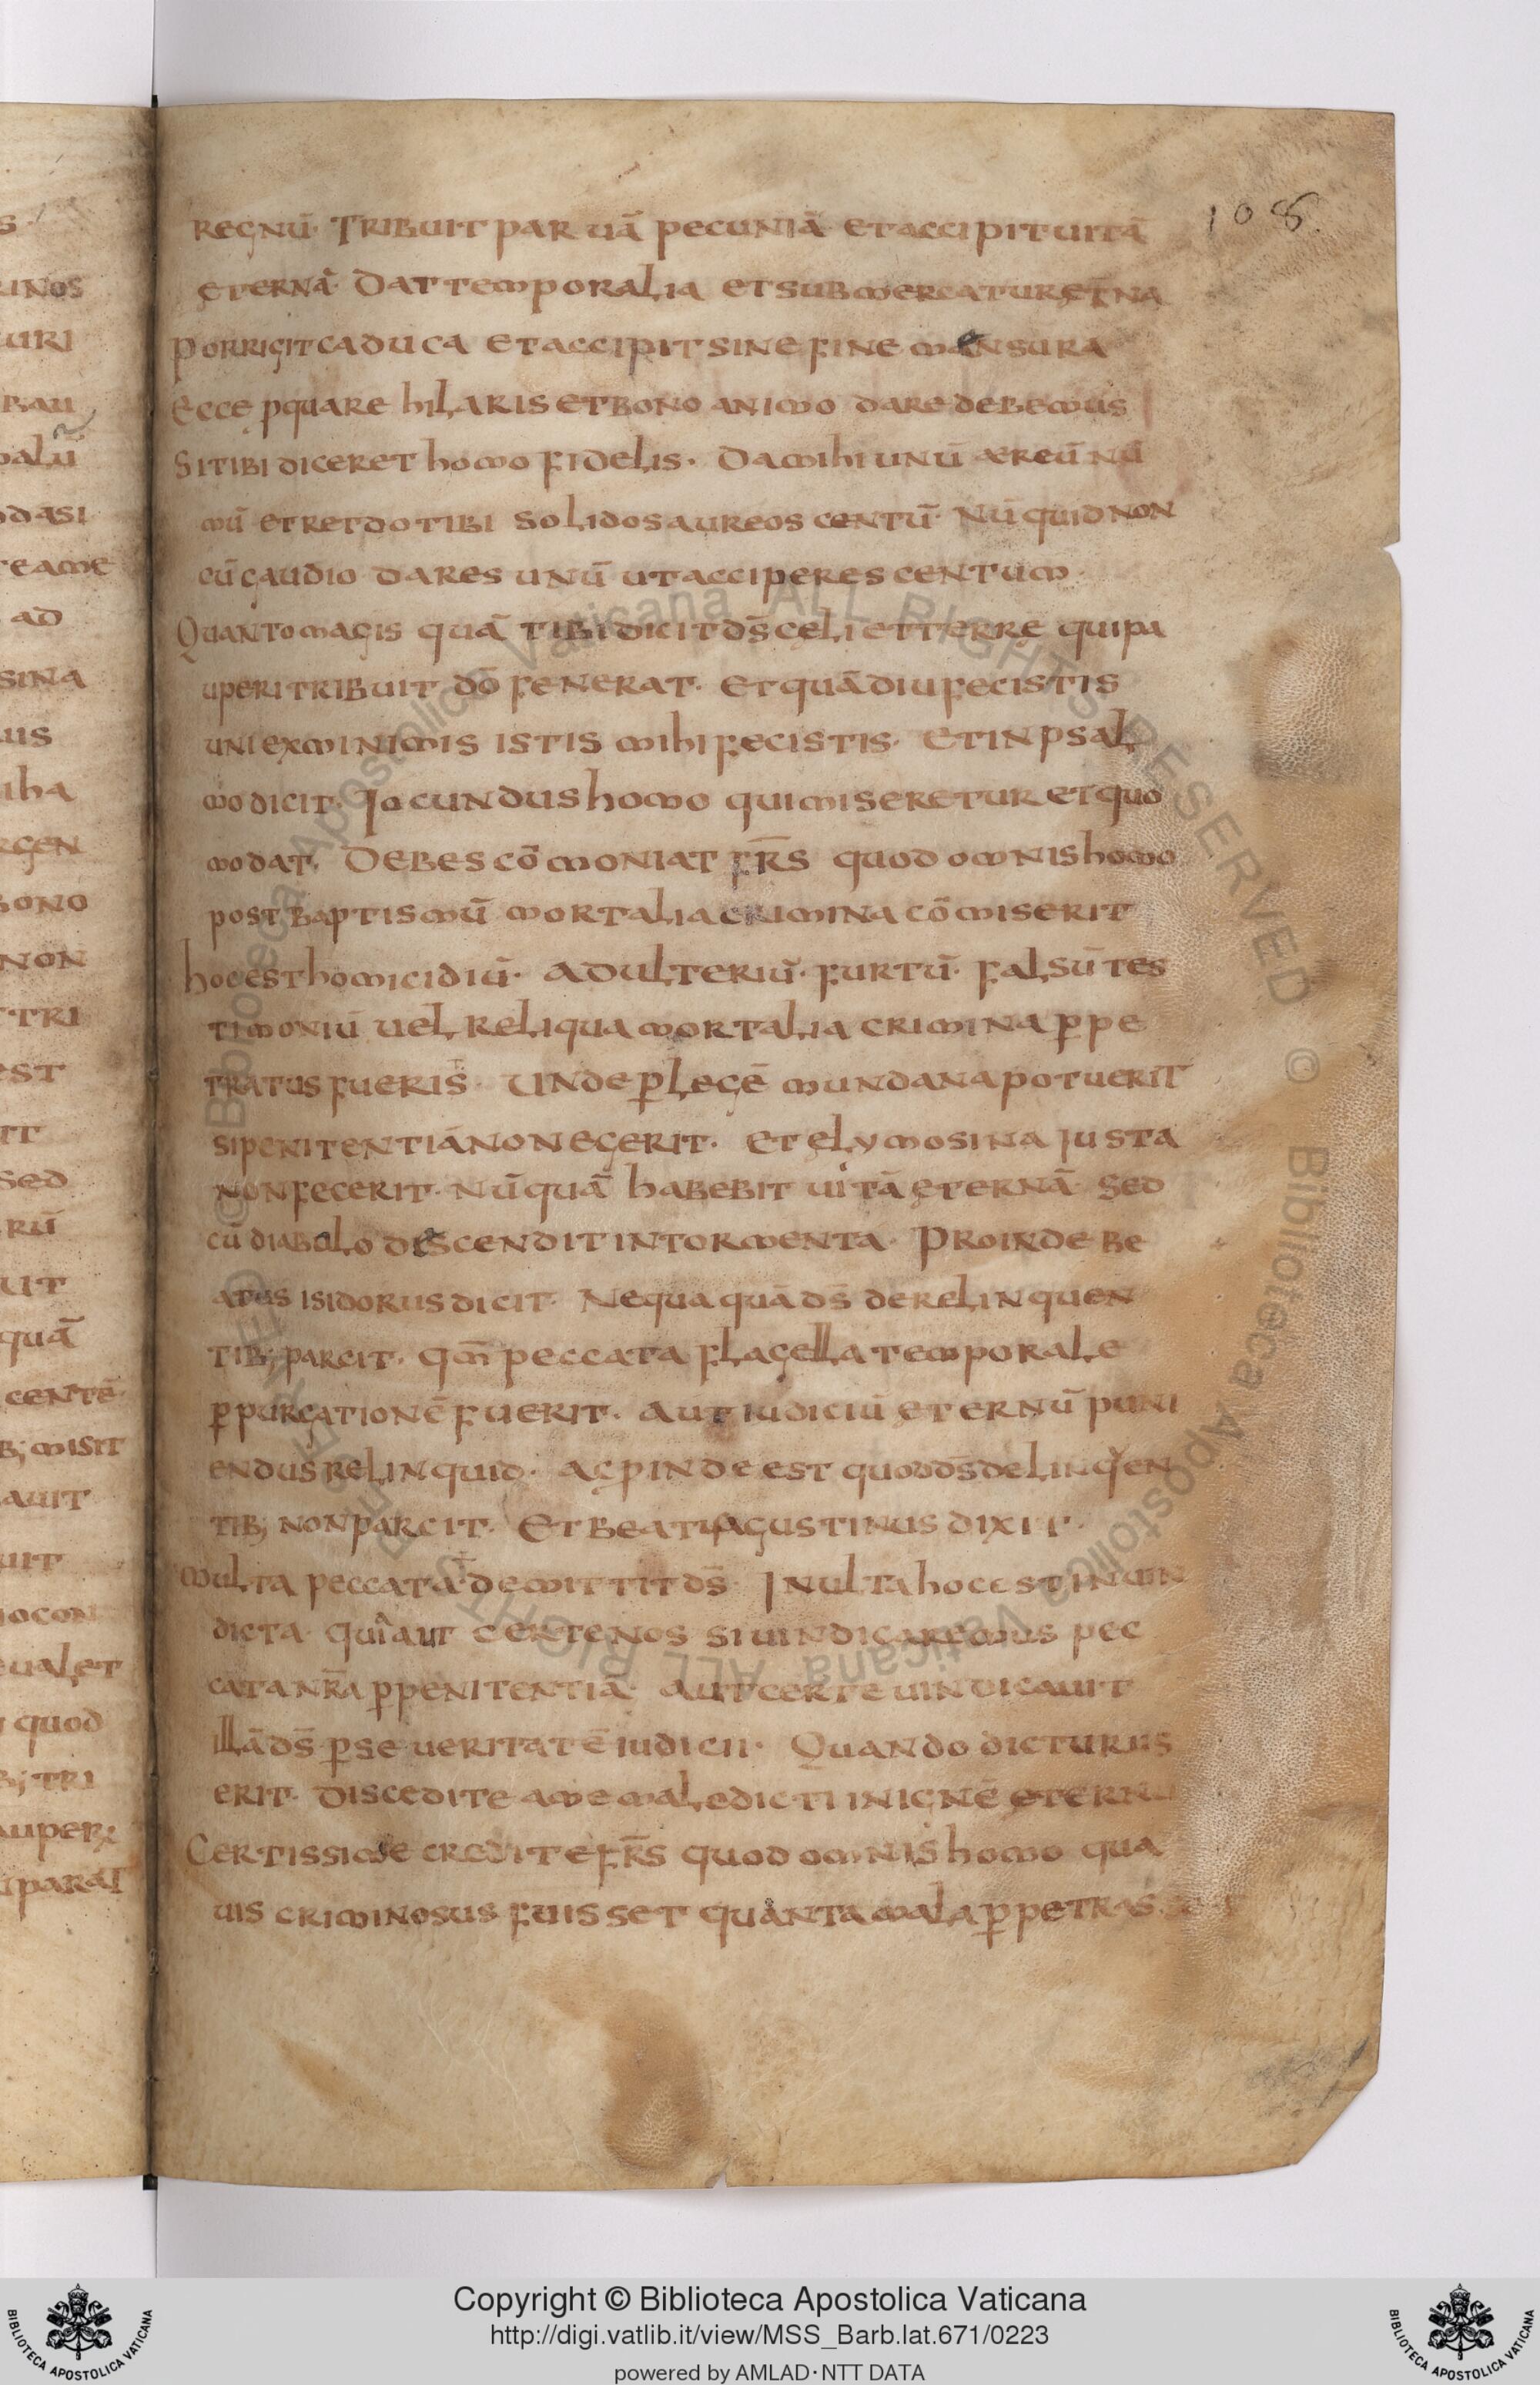 108
regnū· Tribuit paruā pecuniā et accipit uitā
ęternā· Dat temporalia et submercatur ęt̄na
porrigit caduca et accipit sine fine mansura
Ecce pquare hilaris et bono animo dare debemus
Si tibi diceret homo fidelis· Da mihi unū aereū nū
mū et retdo tibi solidos aureos centū· Nūquid non
cū gaudio dares unū ut acciperes centum·
Quanto magis quā tibi dicit d̄s cęli et terrę qui pa
uperi tribuit dō fenerat· Et quādiu fecistis
uni ex minimis istis mihi fecistis· Et in psal
mo dicit· Jocundus homo qui miseretur et quo
modat· Debes cōmoniat fr̄s quod omnis homo
post baptismū mortalia crimina cōmiserit
hoc est homicidiū· adulteriū· furtū· falsū tes
timoniū uel reliqua mortalia crimina p̱pe
tratus fueris· Unde p̱ legē mundana potuerit
si penitentiā non egerit· et elymosina justa
non fecerit· Nūquā habebit uitā ęternā· Sed
cū diabolo discendit in tormenta· Proinde be
atus isidorus dicit· Nequaquā d̄s derelinquen
tib; parcit· qm̄ peccata flagella temporale
p̱ purgationē fuerit· aut iudiciū ęternū puni
endus relinquid· ac pinde est quod d̄s delinqen
tib; non parcit· Et beati agustinus dixit·
Multa peccata demittit d̄s· Inulta hoc est inuin
dicta· quia aut certe nos si uindicaremus pec
cata nr̄a p̱ penitentiā· aut certe uindicauit
illā d̄s p̱ seueritatē iudicii· Quando dicturus
erit· Discedite a me maledicti in ignē ęternū
Certissime credite fr̄s quod omnis homo qua
uis criminosus fuisset quanta mala p̱petras
© Biblioteca Apostolica Vaticana ALL RIGHTS RESERVED © Biblioteca Apostolica Vaticana ALL RIGHTS RESERVED
Copyright © Biblioteca Apostolica Vaticana
http://digi.vatlib.it/view/MSS_Barb.lat.671/0223
powered by AMLAD·NTT DATA
BIBLIOTECA APOSTOLICA VATICANA
BIBLIOTECA APOSTOLICA VATICANA